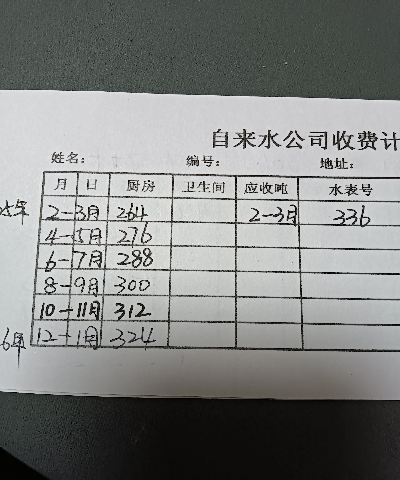 自来水公司收费计
姓名: 编号: 地址:
月 日 厨房 卫生间 应收吨 水表号
25年 2-3月 264 2-3月 336
4-5月 276
6-7月 288
8-9月 300
10-11月 312
6年 12-1月 324